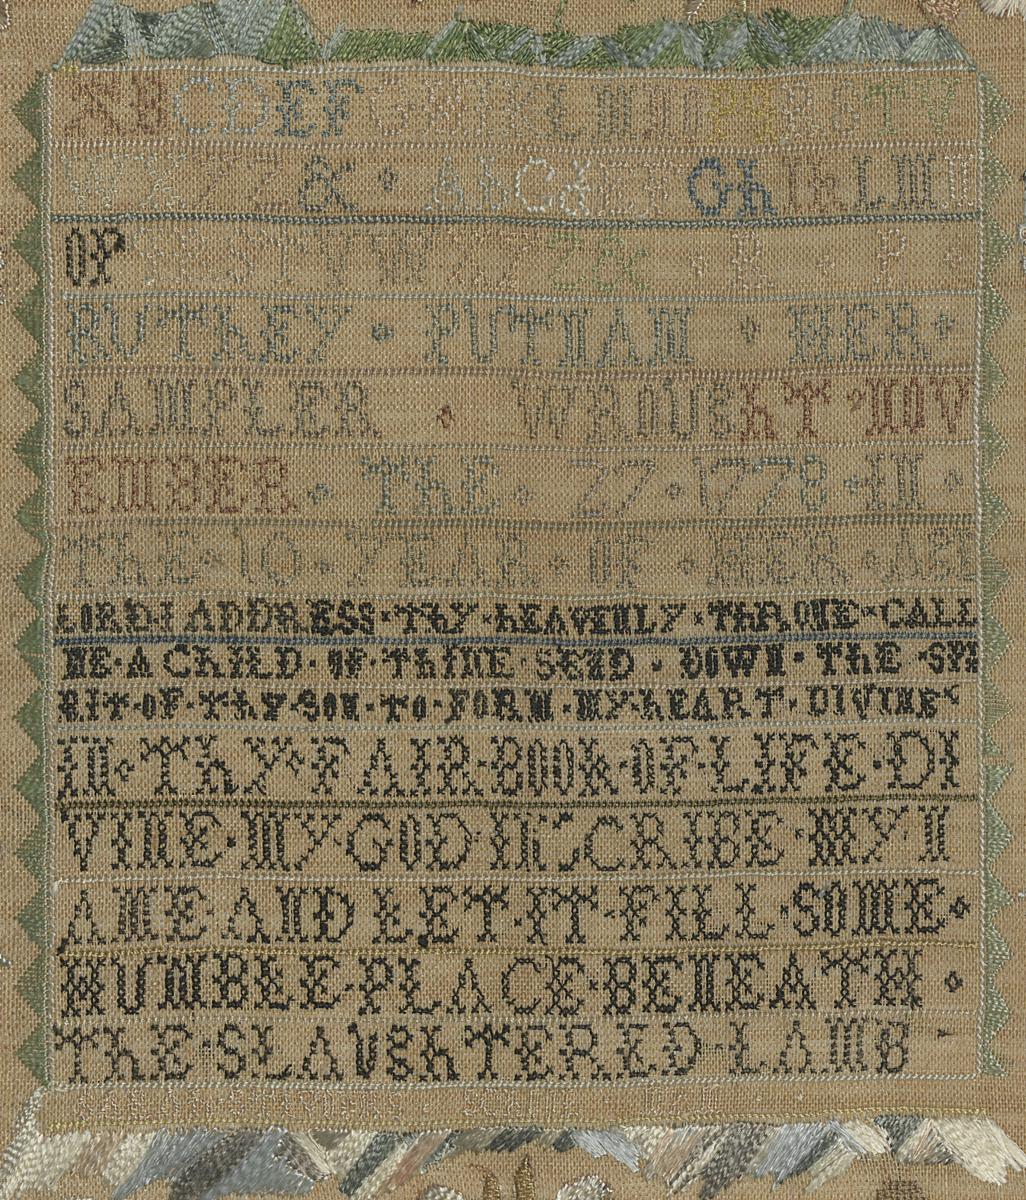 ABCDEFGHIKLMNOPQRSTV
WXYZ & AbCdEFGhIKLMN
OP RSTVWXYZ & R P
RUThEY PUTNAM HER
SAMPLER WROUGhT NOV
EMBER ThE 27 1778 IN
ThE 10 YEAR OF HER AGE
LORD I ADDRESS ThY hEAVENLY ThRONE CALL
ME A ChILD OF ThINE SEND DOWN ThE SPI
RIT OF ThY SON TO FORM MY hEART DIVINE
IN ThY FAIR BOOK OF LIFE DI
VINE MY GOD INSCRIBE MY N
AME AND LET IT FILL SOME
HUMBLE PLACE BENEATH
ThE SLAUGhTERED LAMB
SARAH STIVOURS SCHOOL